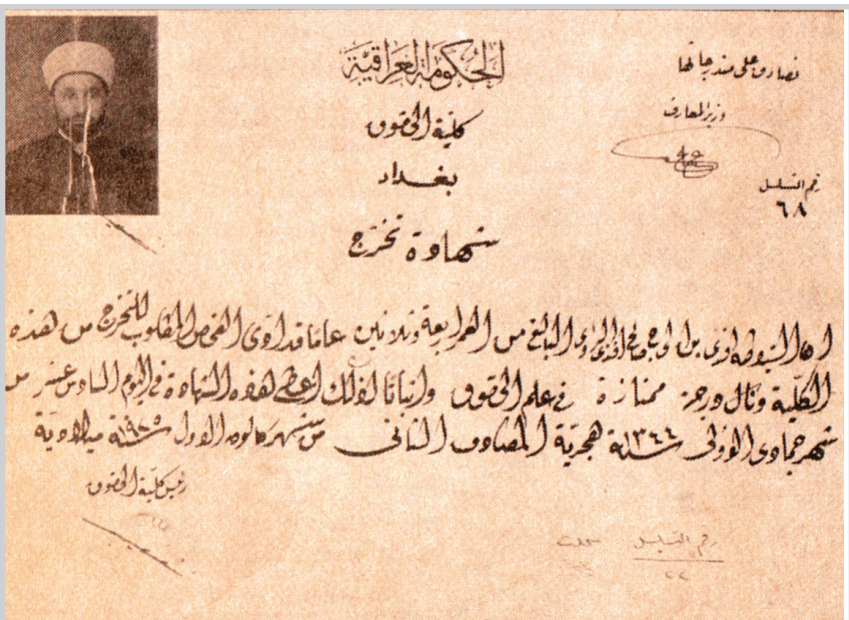 الحكومة العراقية
كلية الحقوق
بغداد
شهادة تخرج
نصادق على مندرجاتها
وزير المعارف
رقم التسلسل
٦٨
ان السيد طه افندي بن الحاج صالح افندي الراوي البالغ من العمر اربعة وثلاثين عاما قد ادى الفحص المطلوب للتخرج من هذه
الكلية ونال درجة ممتازة في علم الحقوق واثباتا لذلك اعطي هذه الشهادة في اليوم السادس عشر من
شهر جمادى الاولى سنة ١٣٤٤ هجرية المصادف الثاني من شهر كانون الاول سنة ١٩٢٥ ميلادية
رئيس كلية الحقوق
رقم التسلسل سجلت
٢٢